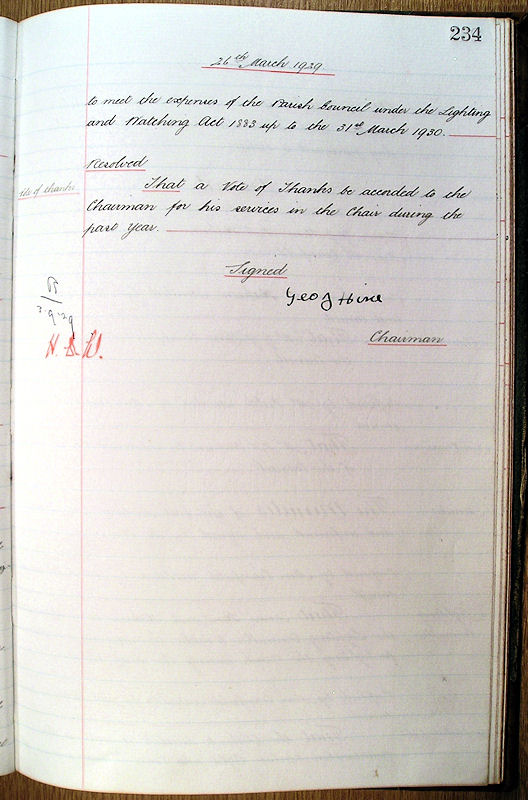 234
26th March 1939
to meet the expenses of the Parish Council under the Lighting
and Watching Act 1883 up to the 31st March 1930.
Resolved
Vote of thanks
That a Vote of Thanks be accorded to the
Chairman for his services in the Chair during the
past year.
Signed
Geo J Hine
3.9.29
Chairman